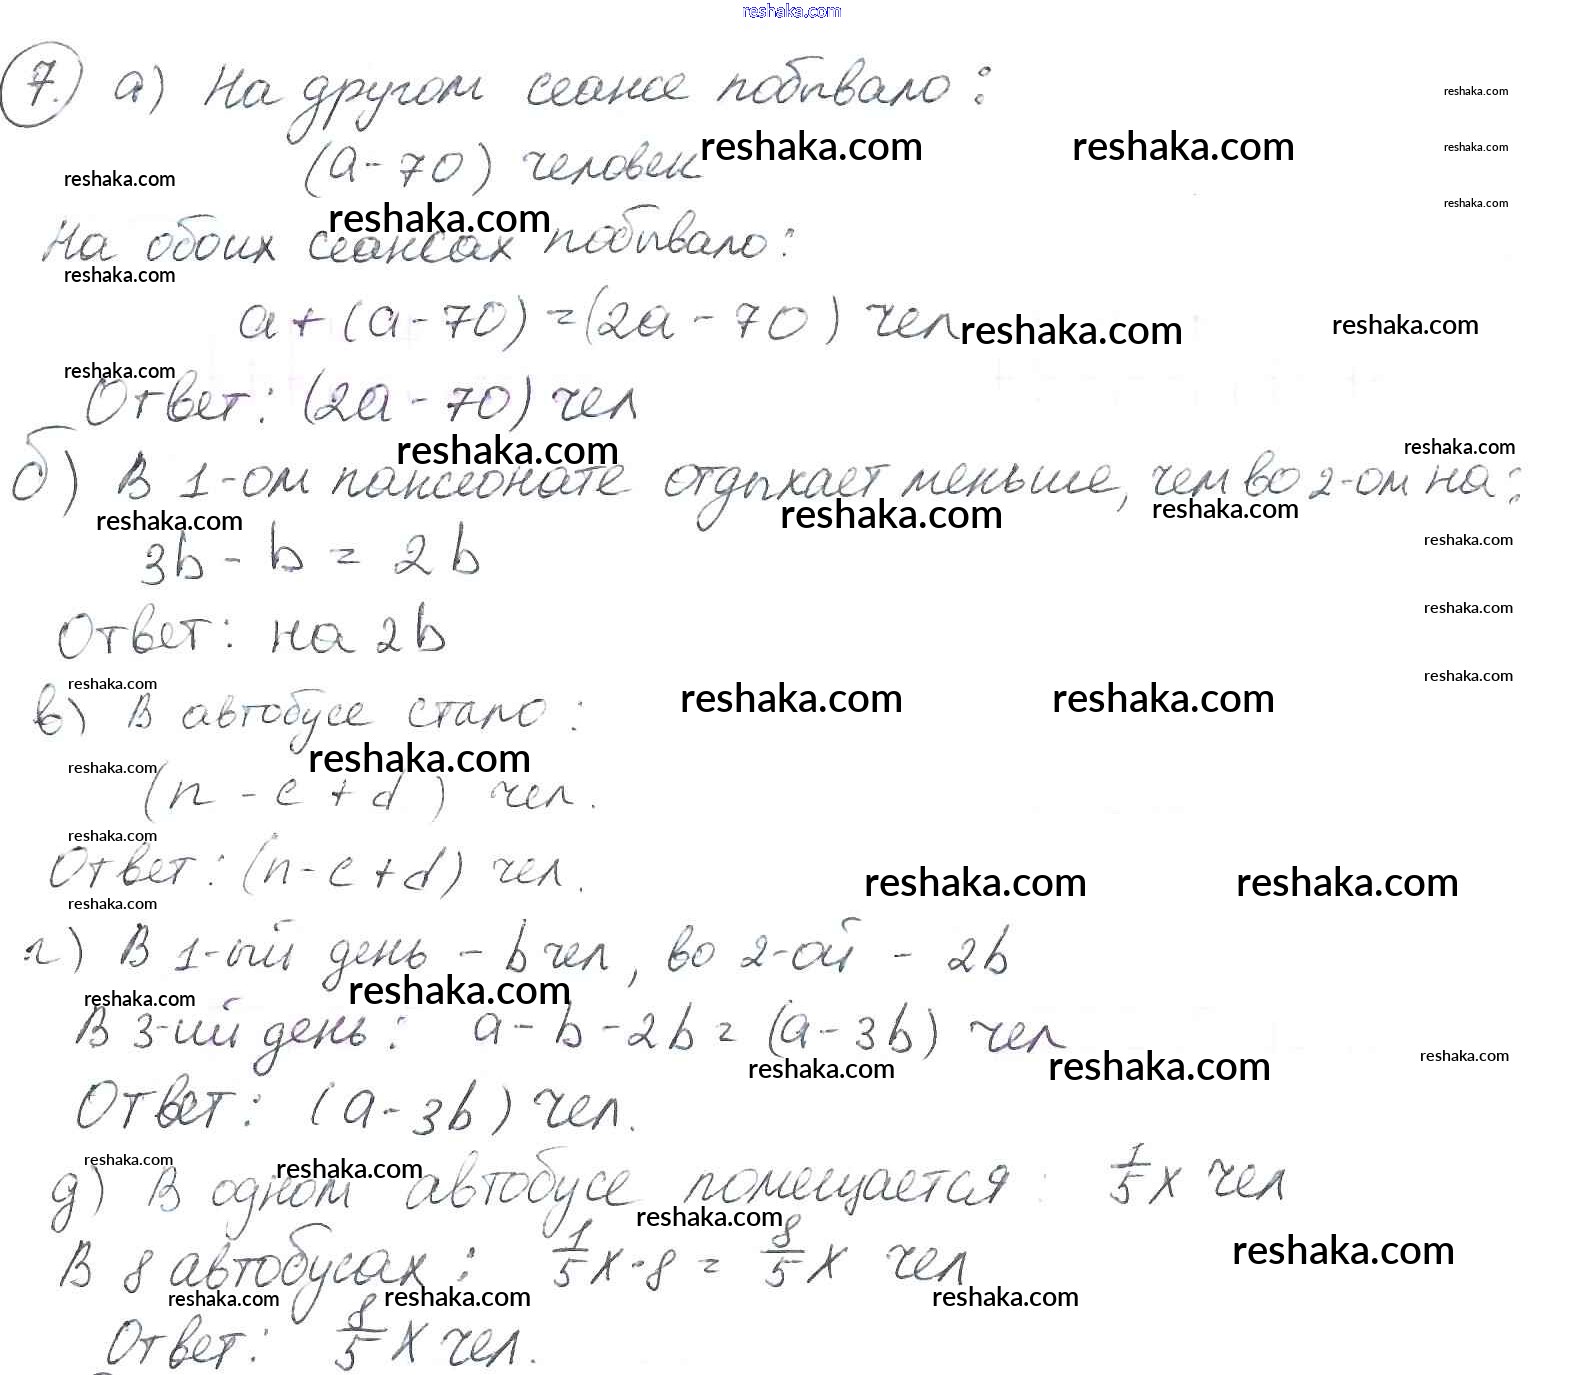 reshaka.com
7. а) На другом сеансе побывало:
reshaka.com
(a-70) человек reshaka.com reshaka.com reshaka.com
reshaka.com
reshaka.com
reshaka.com
На обоих сеансах побывало:
reshaka.com
a+(a-70)=(2a-70) чел reshaka.com reshaka.com
reshaka.com
Ответ: (2a-70) чел
reshaka.com reshaka.com
б) В 1-ом пансеонате отдыхает меньше, чем во 2-ом на:
reshaka.com reshaka.com reshaka.com
3b-b=2b
reshaka.com
Ответ: на 2b
reshaka.com
reshaka.com
reshaka.com reshaka.com reshaka.com
в) В автобусе стало:
reshaka.com reshaka.com
(n-c+d) чел.
reshaka.com
Ответ: (n-c+d) чел. reshaka.com reshaka.com
reshaka.com
г) В 1-ый день - b чел, во 2-ой - 2b
reshaka.com reshaka.com
В 3-ий день: a-b-2b=(a-3b) чел
reshaka.com reshaka.com reshaka.com
Ответ: (a-3b) чел.
reshaka.com reshaka.com
д) В одном автобусе помещается: 1/5 x чел
reshaka.com
В 8 автобусах: 1/5 x·8 = 8/5 x чел reshaka.com
reshaka.com reshaka.com reshaka.com
Ответ: 8/5 x чел.